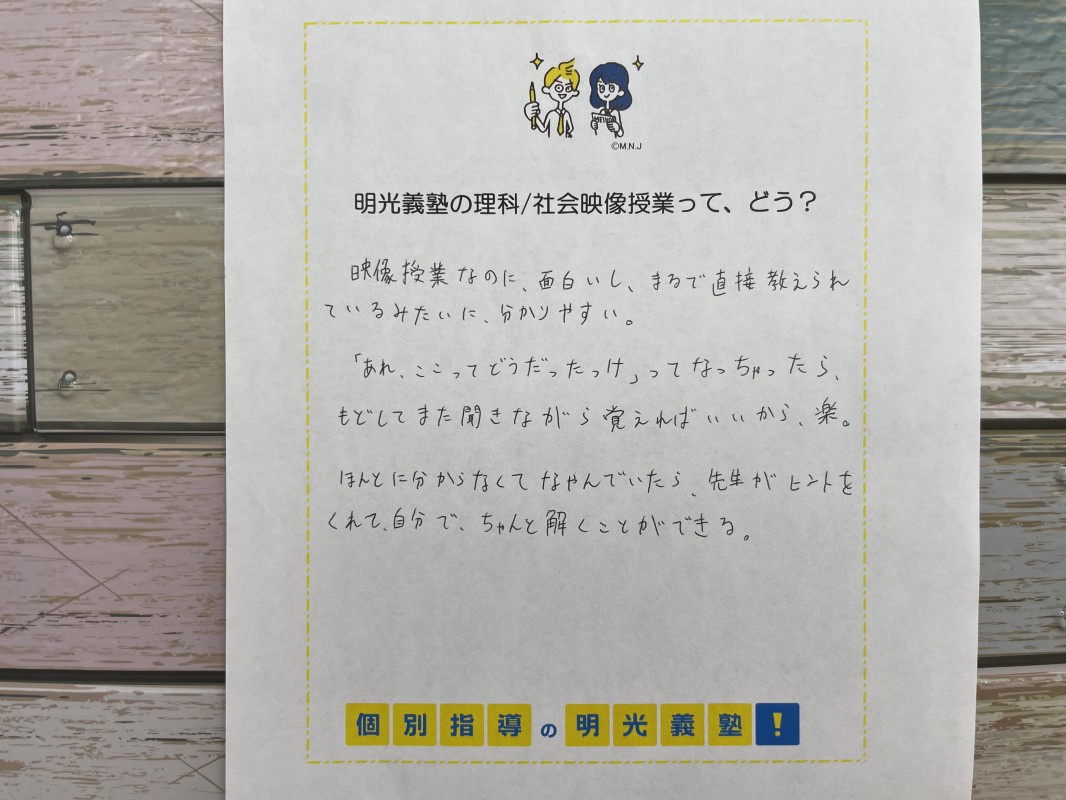 MEIKO
©M.N.J
明光義塾の理科/社会映像授業って、どう？
映像授業なのに、面白いし、まるで直接教えられ
ているみたいに、分かりやすい。
「あれ、ここってどうだったっけ」ってなっちゃったら、
もどしてまた聞きながら覚えればいいから、楽。
ほんとに分からなくてなやんでいたら、先生がヒントを
くれて、自分で、ちゃんと解くことができる。
個別指導の明光義塾！